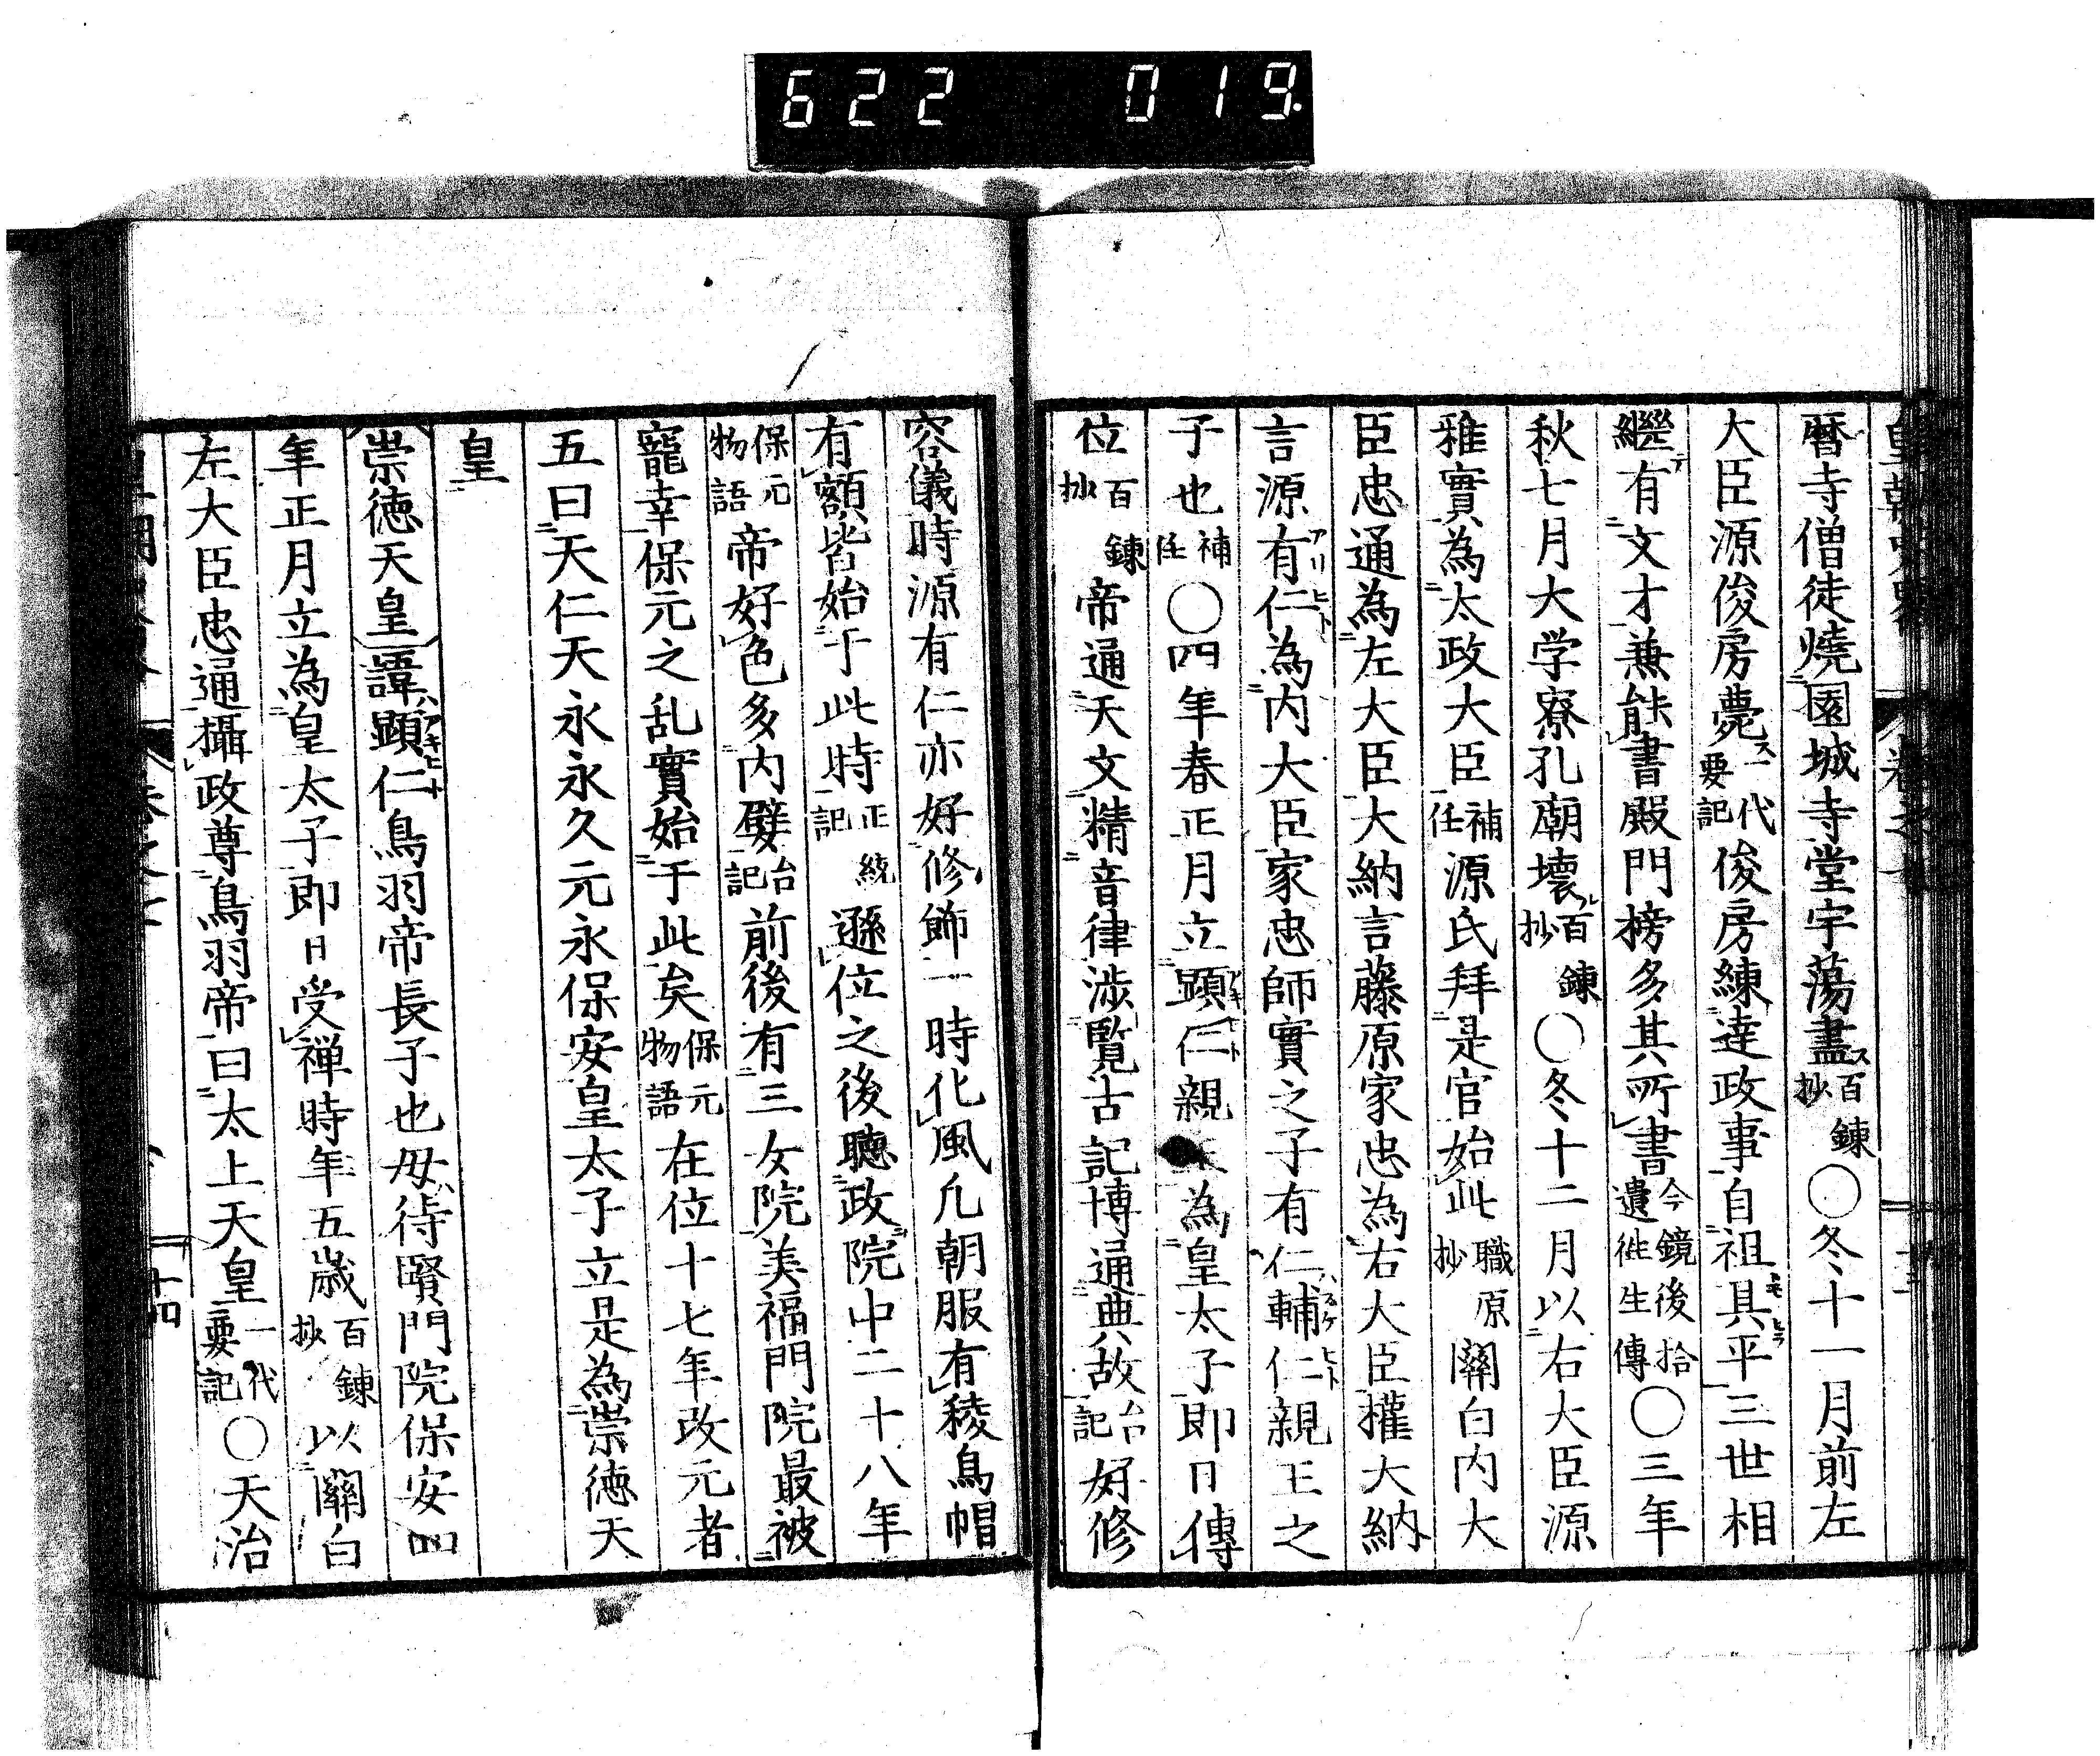 622 019
暦寺僧徒燒園城寺堂宇蕩盡ス百錬抄〇冬十一月前左
大臣源俊房薨ス一代要記俊房練達政事自祖具平三世相
繼テ有文才兼能書殿門榜多其所書今鏡後拾遺徃生傳〇三年
秋七月大学寮孔廟壊ル百錬抄〇冬十二月以右大臣源
雅實為太政大臣補任源氏拜是官始此職原抄關白内大
臣忠通為左大臣大納言藤原家忠為右大臣權大納
言源有仁為内大臣家忠師實之子有仁ハ輔仁親王之
子也補任〇四年春正月立顕仁親為皇太子即日傳
位百錬抄帝通天文精音律渉覧古記博通典故台記好修
容儀時源有仁亦好修飾一時化風凢朝服有稜烏帽
有額皆始于此時正統記遜位之後聴政院中二十八年
保元物語帝好色多内嬖台記前後有三女院美福門院最被
寵幸保元之乱實始于此矣保元物語在位十七年改元者
五曰天仁天永永久元永保安皇太子立是為崇徳天
皇
崇徳天皇諱ハ顕仁鳥羽帝長子也母ハ待賢門院保安四
年正月立為皇太子即日受禅時年五歳百錬抄以關白
左大臣忠通攝政尊鳥羽帝曰太上天皇一代要記〇天治
十四